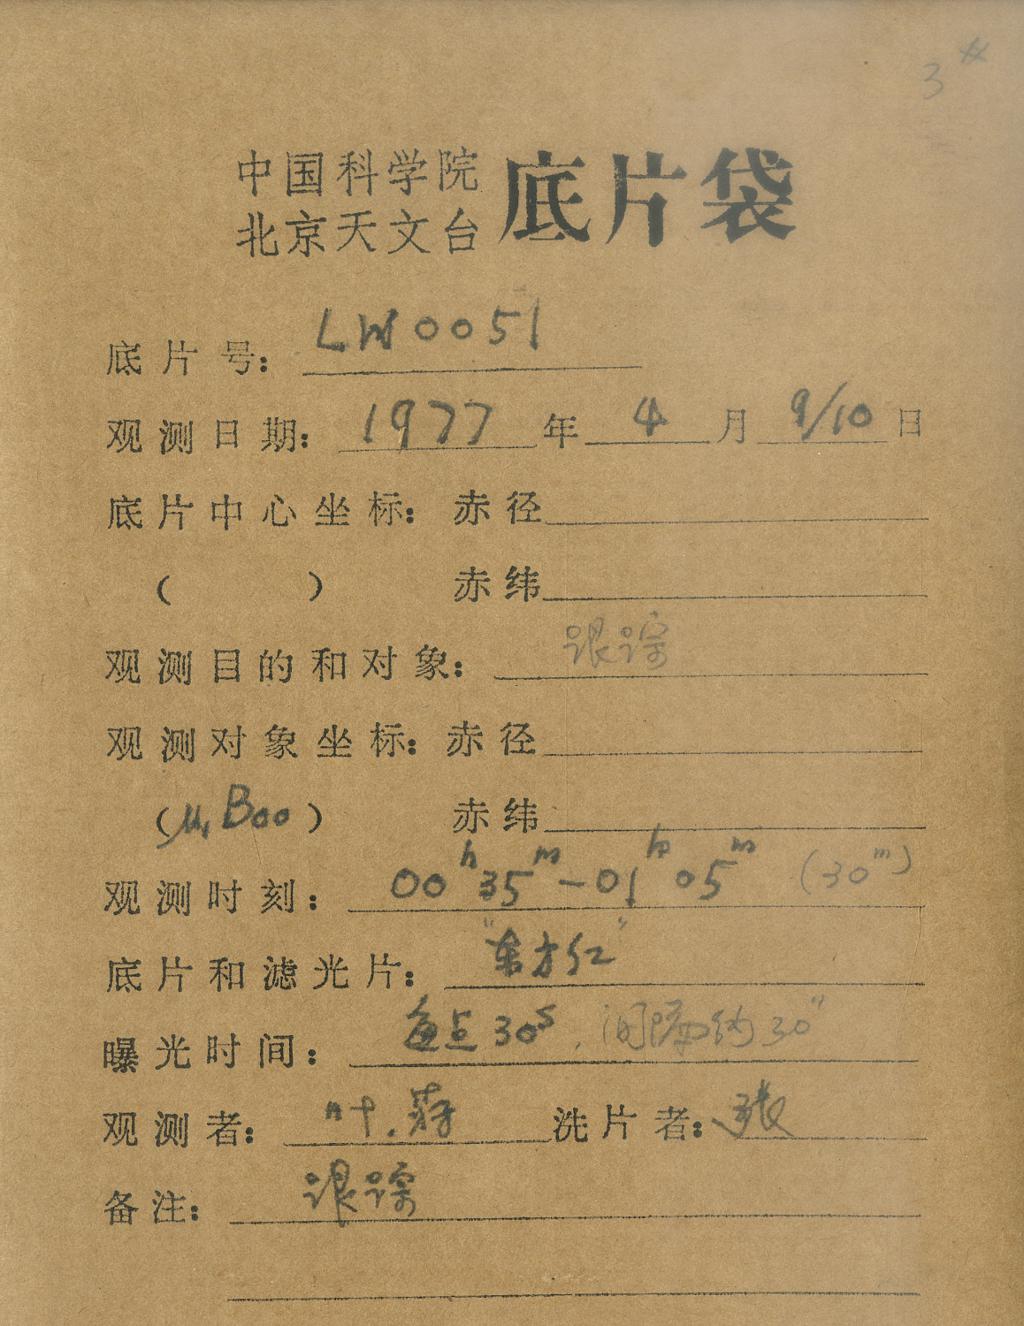 3#
中国科学院
北京天文台 底片袋
底片号： LW0051
观测日期： 1977 年 4 月 9/10 日
底片中心坐标： 赤径
（ ） 赤纬
观测目的和对象： 跟踪
观测对象坐标： 赤径
（μ₁ Boo） 赤纬
观测时刻： 00ʰ35ᵐ-01ʰ05ᵐ （30ᵐ）
底片和滤光片： "东方红"
曝光时间： 每点30ˢ，间隔约30"
观测者： 叶. 蒋 洗片者： 张
备注： 跟踪